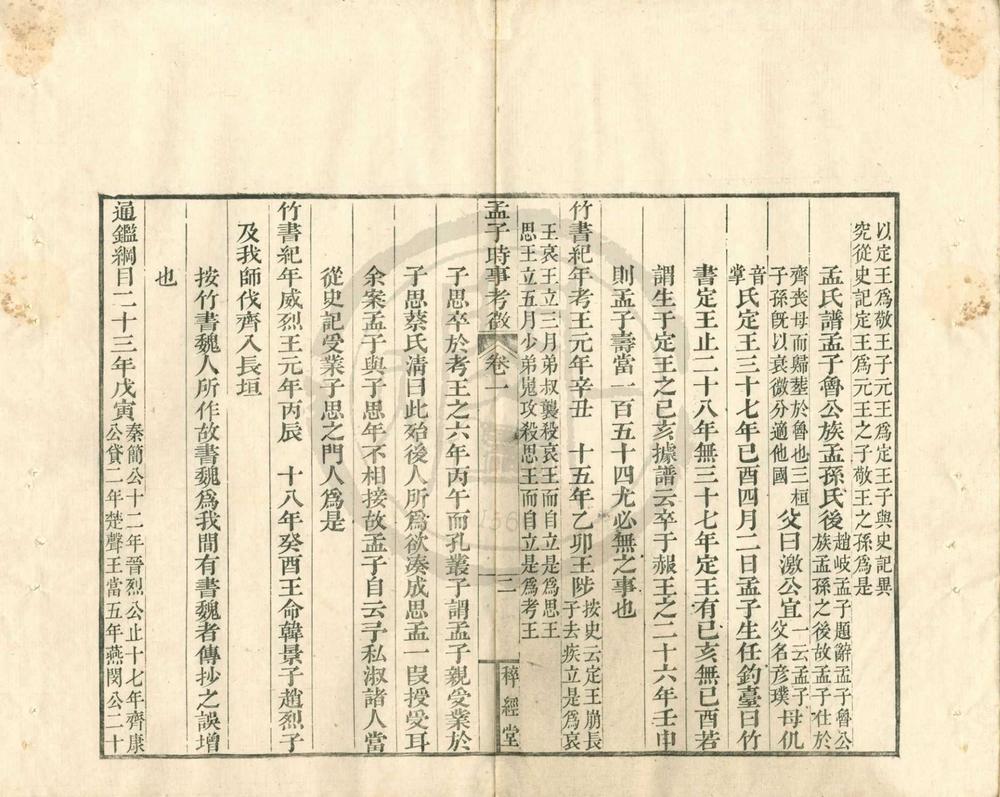 以定王爲敬王子元王爲定王子與史記異
究從史記定王爲元王之子敬王之孫爲是
孟氏譜孟子魯公族孟孫氏後
趙岐孟子題辭孟子魯公
族孟孫之後故孟子仕於
齊喪母而歸塟於魯也三桓
子孫旣以衰微分適他國
父曰激公宜
一云孟子
父名彥璞
母仉
音
掌
氏定王三十七年己酉四月二日孟子生任釣臺曰竹
書定王止二十八年無三十七年定王有己亥無己酉若
謂生于定王之己亥據譜云卒于赧王之二十六年壬申
則孟子壽當一百五十四尤必無之事也
竹書紀年考王元年辛丑 十五年乙卯王陟
按史云定王崩長
子去疾立是爲哀
王哀王立三月弟叔襲殺哀王而自立是爲思王
思王立五月少弟嵬攻殺思王而自立是爲考王
孟子時事考徵 卷一 二 稡經堂
子思卒於考王之六年丙午而孔叢子謂孟子親受業於
子思蔡氏淸曰此殆後人所爲欲湊成思孟一叚授受耳
余案孟子與子思年不相接故孟子自云予私淑諸人當
從史記受業子思之門人爲是
竹書紀年威烈王元年丙辰 十八年癸酉王命韓景子趙烈子
及我師伐齊入長垣
按竹書魏人所作故書魏爲我間有書魏者傳抄之誤增
也
通鑑綱目二十三年戊寅
秦簡公十二年晉烈公止十七年齊康
公貸二年楚聲王當五年燕閔公二十